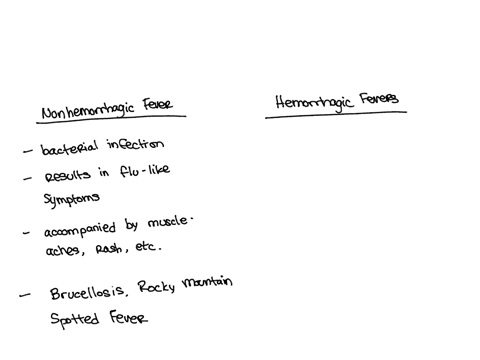 Nonhemorrhagic Fever
Hemorrhagic Fevers
- bacterial infection
- Results in flu-like
Symptoms
- accompanied by muscle
aches, Rash, etc.
- Brucellosis, Rocky Mountain
Spotted Fever